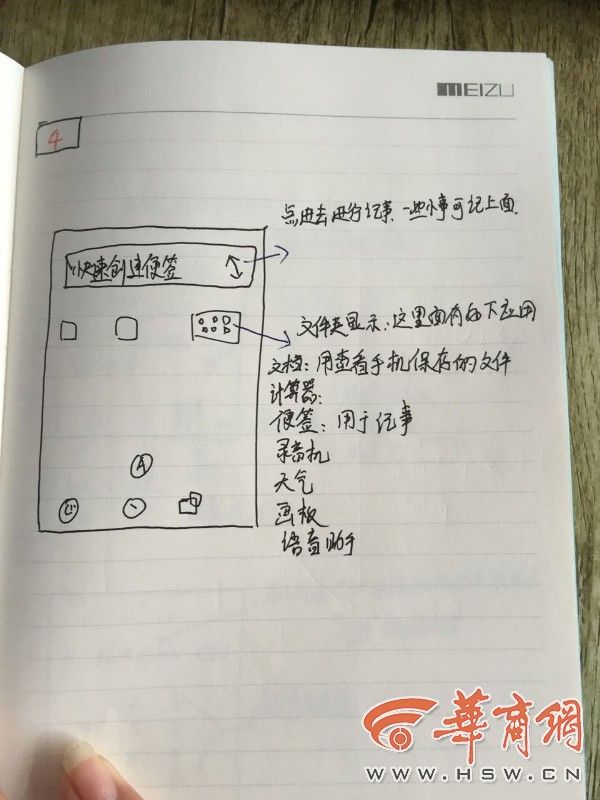 MEIZU
4
点进去进行记事、一些小事可记上面.
快速创建便签
文件夹显示:这里面有如下应用
文档:用查看手机保存的文件
计算器:
便签:用于记事
录音机
天气
画板
语音助手
A
華商網
WWW.HSW.CN